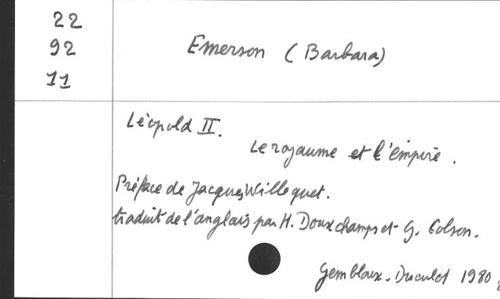 22
92
11
Emerson (Barbara)
Léopold II.
Le royaume et l'empire.
Préface de Jacques Willequet.
traduit de l'anglais par H. Douxchamps et G. Colson.
Gembloux. Duculot 1980.